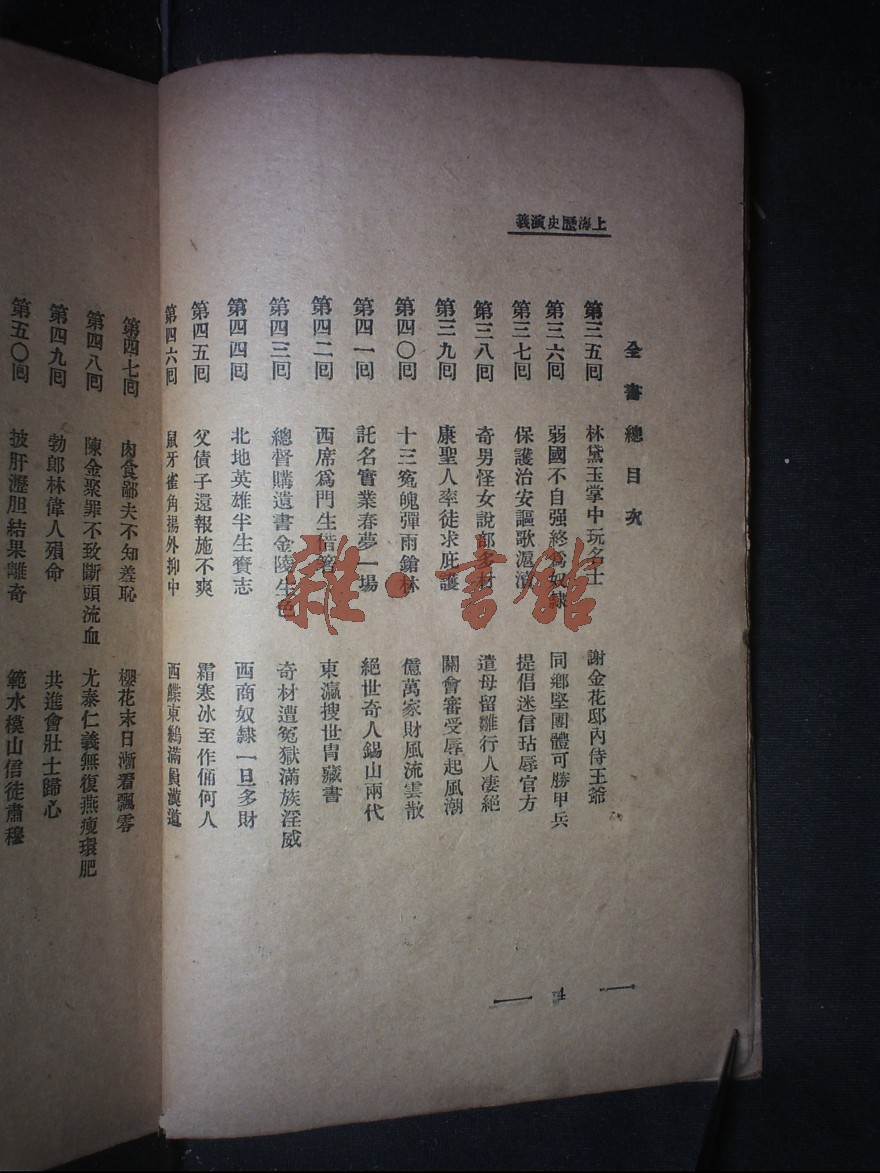 上海歷史演義
全書總目次
第三五囘 林黛玉掌中玩名士 謝金花邸內侍王爺
第三六囘 弱國不自强終爲奴隸 同鄉堅團體可勝甲兵
第三七囘 保護治安謳歌滬濱 提倡迷信玷辱官方
第三八囘 奇男怪女說部多材 遣母留雛行人凄絕
第三九囘 康聖人率徒求庇護 關會審受辱起風潮
第四〇囘 十三冤魄彈雨鎗林 億萬家財風流雲散
第四一囘 託名實業春夢一場 絕世奇人錫山兩代
第四二囘 西席爲門生借箸 東瀛搜世胄藏書
第四三囘 總督購遺書金陵生色 奇材遭冤獄滿族淫威
第四四囘 北地英雄半生賫志 西商奴隸一旦多財
第四五囘 父債子還報施不爽 霜寒冰至作俑何人
第四六囘 鼠牙雀角揚外抑中 西鰈東鶼滿員漢道
第四七囘 肉食鄙夫不知羞恥 櫻花末日漸看飄零
第四八囘 陳金聚罪不致斷頭流血 尤泰仁義無復燕瘦環肥
第四九囘 勃郎林偉人殞命 共進會壯士歸心
第五〇囘 披肝瀝胆結果離奇 範水模山信徒肅穆
雜·書館